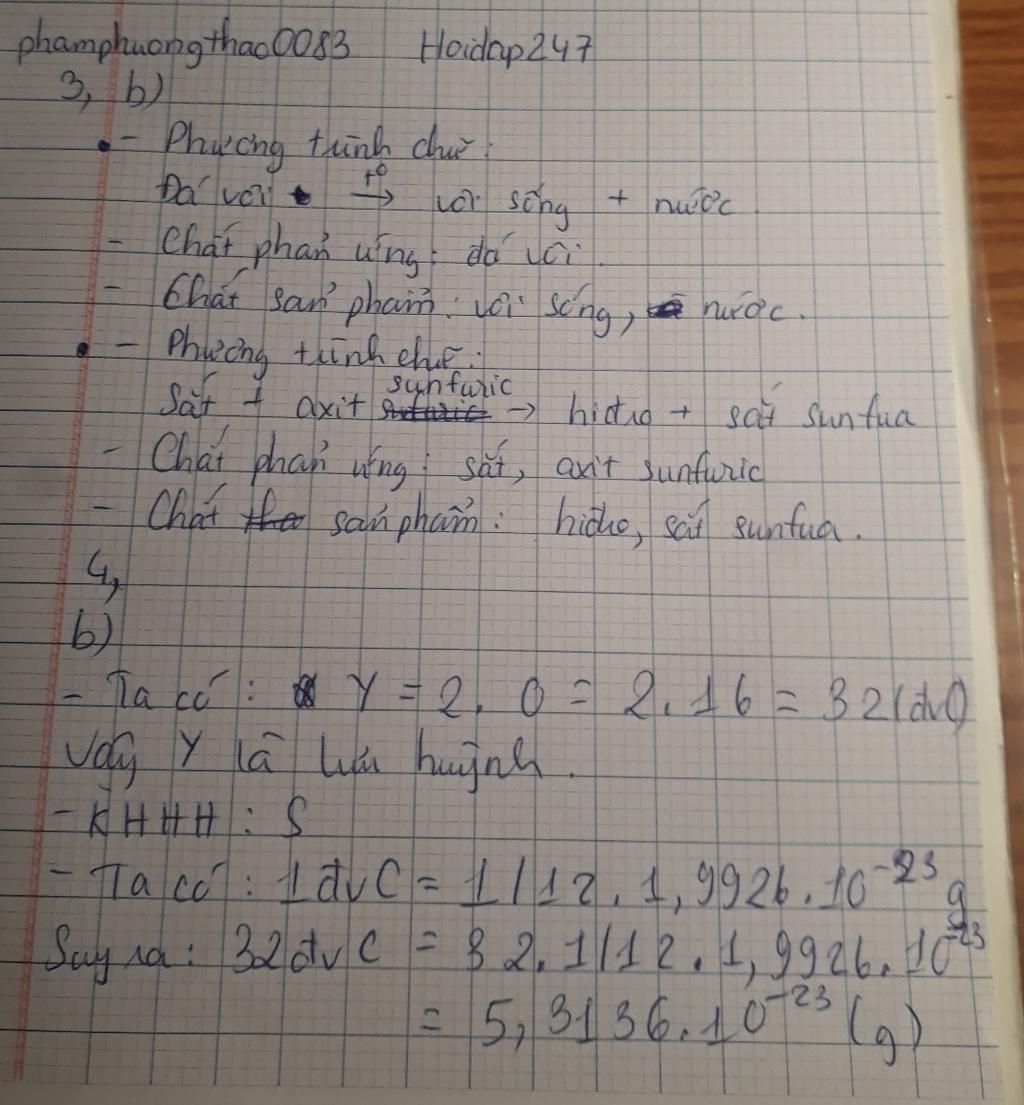 phamphuongthao0083 Hoidap247
3, b)
- Phương trình chữ:
Đá vôi t° → vôi sống + nước
- Chất phản ứng: đá vôi.
- Chất sản phẩm: vôi sống, nước.
- Phương trình chữ:
Sắt + axit sunfuric → hiđro + sắt sunfua
- Chất phản ứng: sắt, axit sunfuric
- Chất sản phẩm: hiđro, sắt sunfua.
4,
b)
- Ta có: Y = 2. O = 2.16 = 32(đvC)
Vậy Y là lưu huỳnh.
- KHHH: S
- Ta có: 1đvC = 1/12.1,9926.10⁻²³ g
Suy ra: 32đvC = 32.1/12.1,9926.10⁻²³
= 5,3136.10⁻²³ (g)